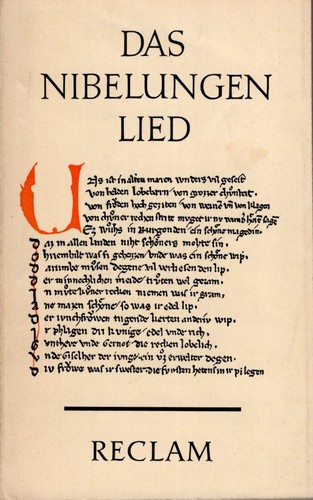 DAS
NIBELUNGEN
LIED
UNs ist in alten mæren wnders vil geseit
von helden lobebærn von grozer chůnheit.
von frôden hoch geziten von weinen vn von klagen
von chůner recken strite mvget ir nv wunder horen sagen
Ez wůhs in Bvrgonden ein schône magedin.
daz in allen landen niht schôners mohte sin.
chriemhilt was si geheizzen vnde was ein schône wip.
darumbe můsen degene vil verliesen den lip.
der minneclichen meide trůten wol gezam.
in můte kůner recken niemen was ir gram.
ane mazen schône so was ir edel lip.
der ivnchfrôwen tugende zierten anderiv wip.
ir phlagen dri kunige edel vnde rich,
Gunthere vnde Gernot die recken lobelich.
vnde Giselher der ivnge ein vz erwelter degen.
div frôwe was ir swester die fvrsten hetens in ir pflegen
RECLAM